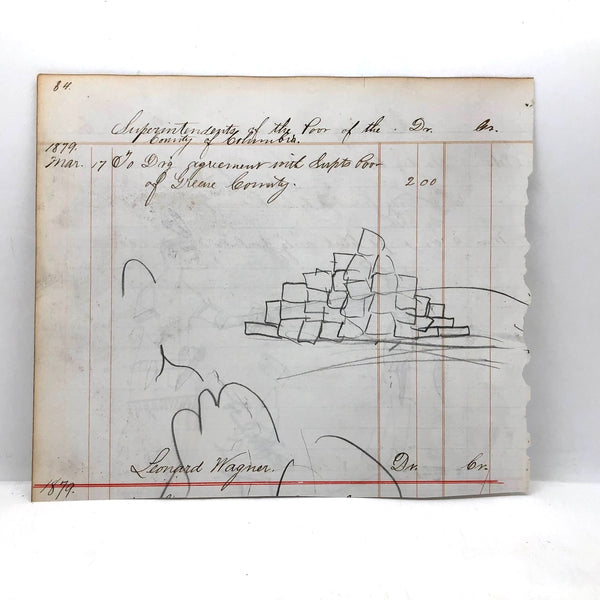 84.
Superintendents of the Poor of the Dr. Cr.
County of Columbia.
1879.
Mar. 17 To Drg agreement with Supts Poor
of Greene County. 2 00
Leonard Wagner. Dr. Cr.
1879.